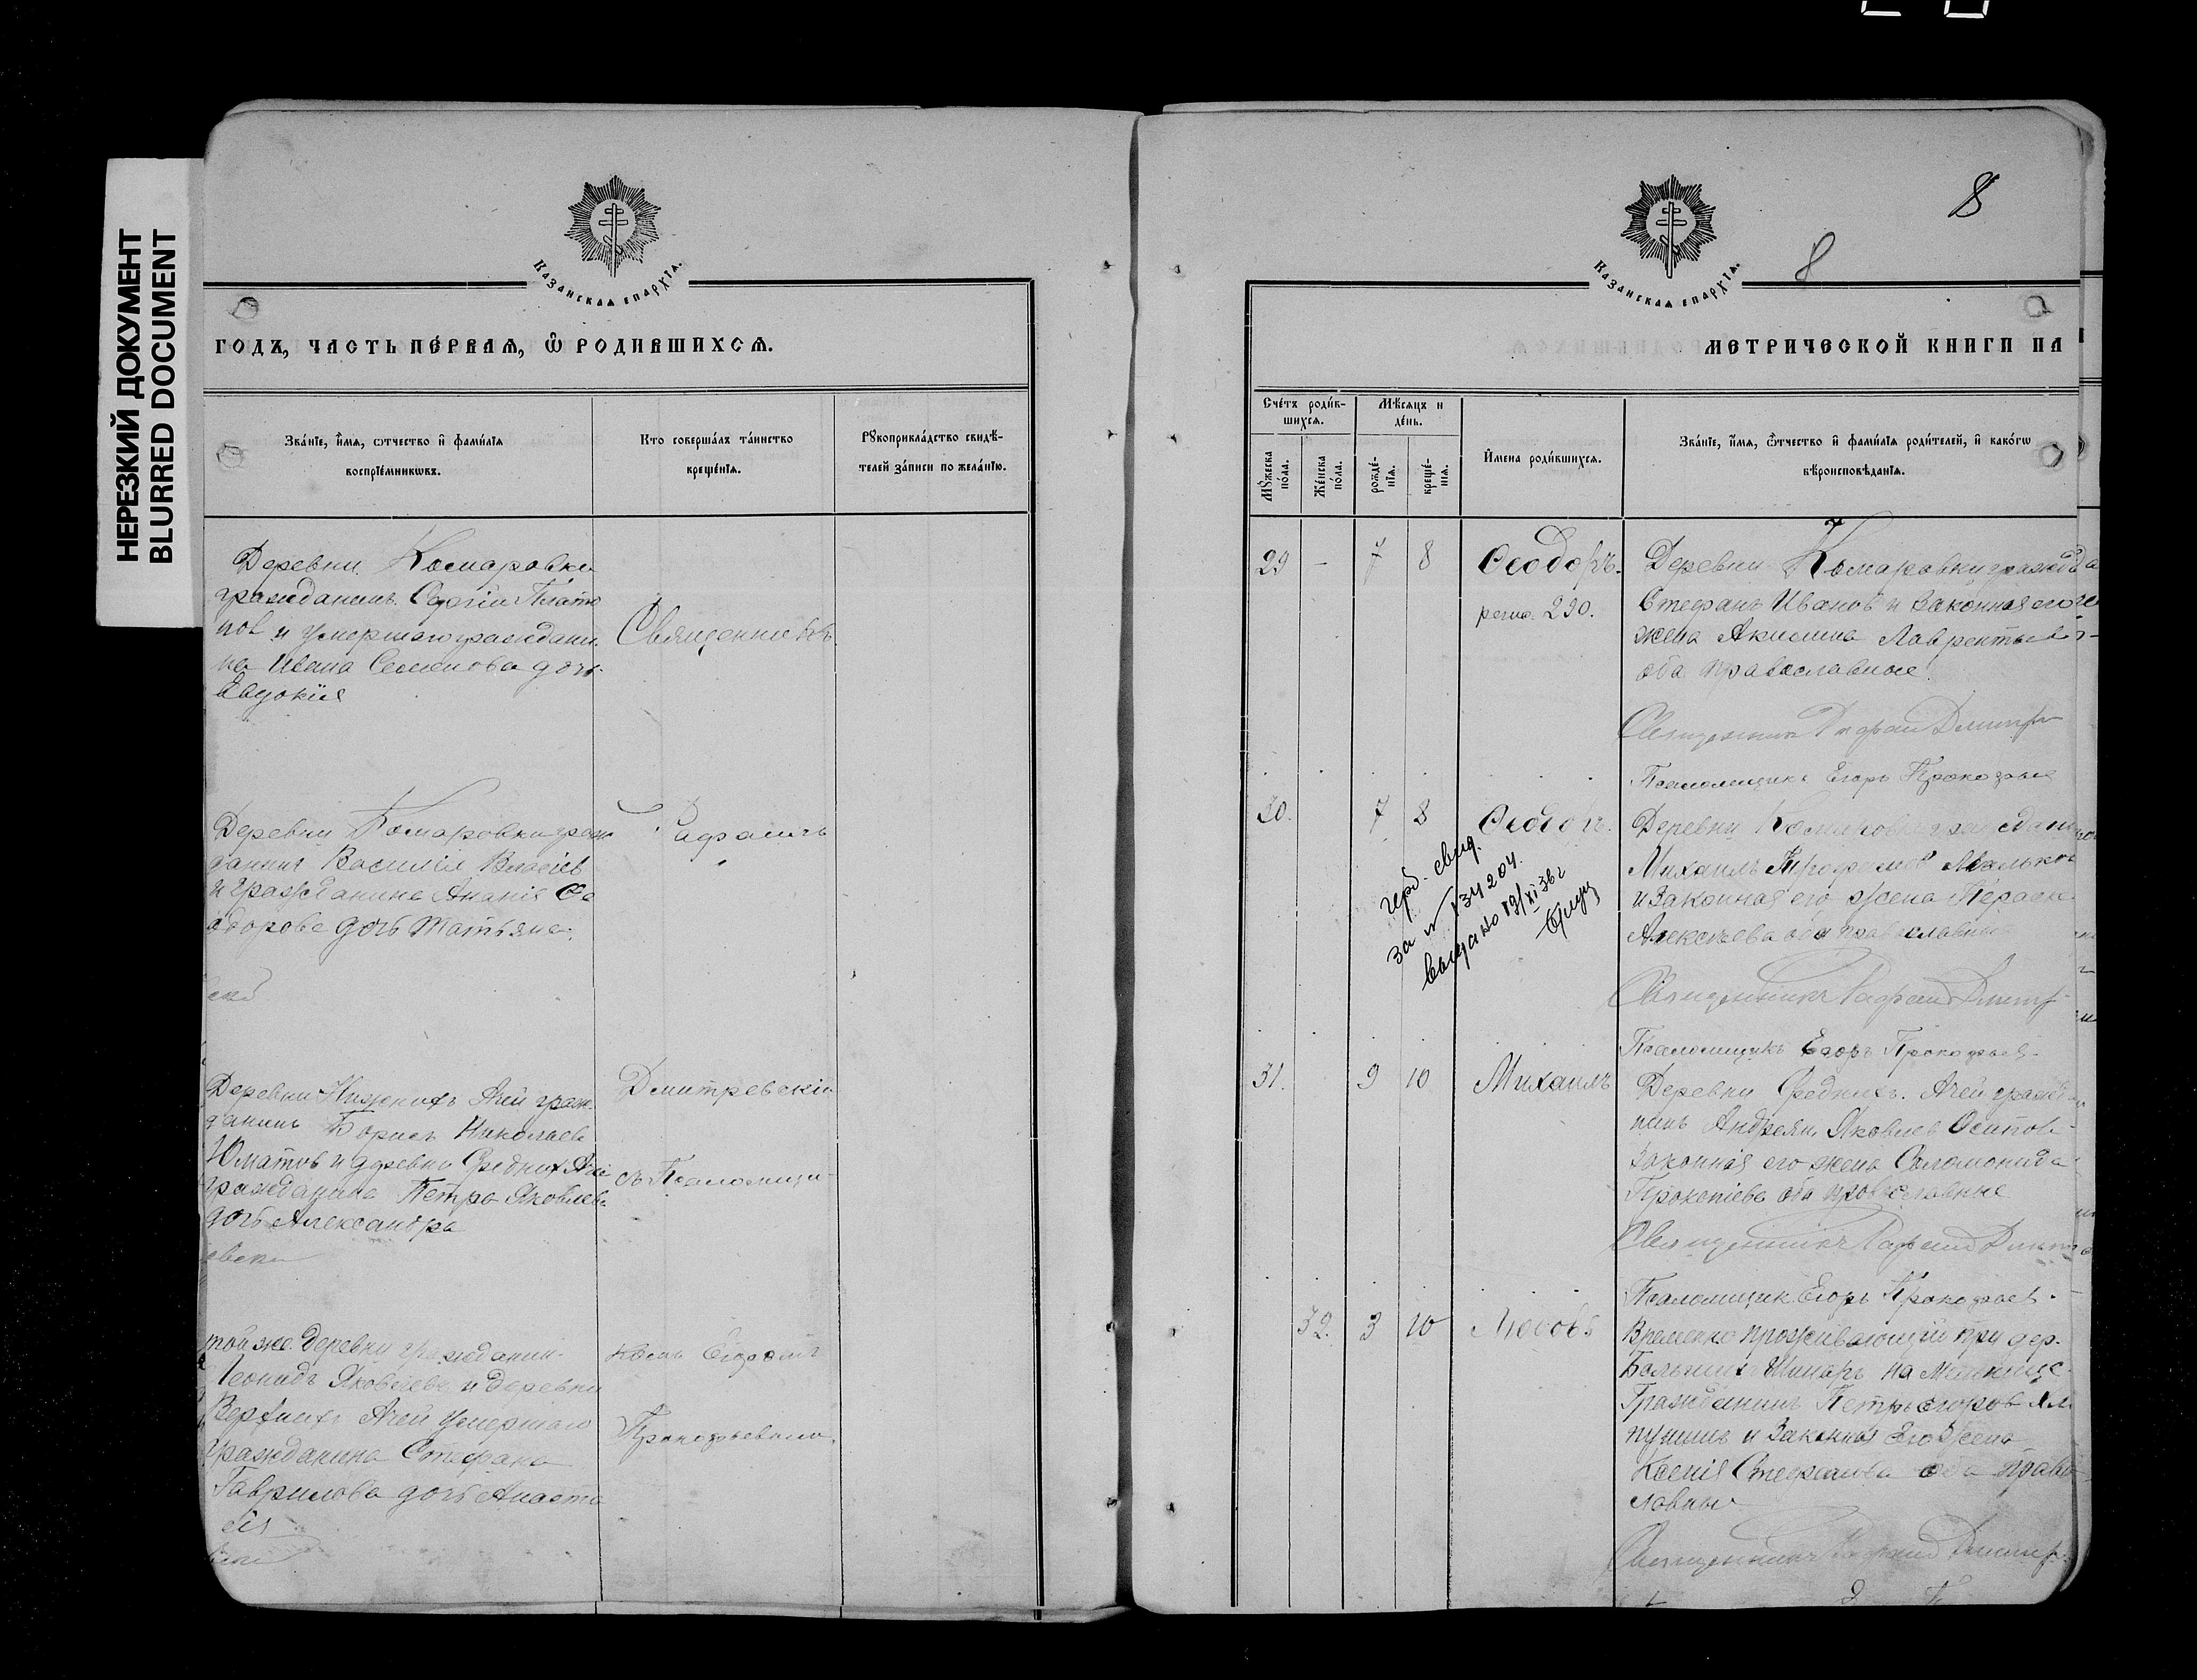 НЕРЕЗКИЙ ДОКУМЕНТ
BLURRED DOCUMENT
Казанская епархїя.
годъ, часть пе́рвая, ѿ родившихся.
Зва́нїе, и҆́мя, ѻтчество и҆ фами́лїя
воспрїе́мникѡвъ.
Кто соверша́лъ та́инство
креще́нїя.
Рꙋкоприкла́дство свидѣ́-
телей за́писи по жела́нїю.
Деревни Комаровки
гражданинъ Сергiй Плато
нов и умершаго граждани
на Ивана Семенова дочь
Евдокия
Священникъ
Деревни Комаровки граж
данинъ Василий Власiев
и гражданина Ананiя Фе
одорова дочь Татьяна.
скiй
Рафаилъ
Деревни Нижних Ачей граж
данинъ Борисъ Николаев
Юматов и деревни Средних Аче
гражданина Петра Яковлева
дочь Александра
евски
Дмитревскiй
съ Псаломщи-
той же деревни гражданин
Леонидъ Яковлевъ и деревни
Верхнихъ Ачей умершаго
гражданина Стефана
Гаврилова дочь Анаста
сiя
комъ Егоромъ
Прокофьевымъ
8
8
Казанская епархїя.
метрической книги на
Сче́тъ роди́в-
шихся.
Мꙋ́жеска
по́ла.
Же́нска
по́ла.
Мѣ́сяцъ и
де́нь.
рожде́-
нїя.
креще́-
нїя.
И҆мена роди́вшихся.
Зва́нїе, и҆́мя, ѻ҆́тчество и҆ фами́лїя роди́телей, и҆ како́гѡ
вѣроисповѣ́данїя.
29 - 7 8 Феодоръ.
230.
Деревни Комаровки гражда
Стефанъ Иванов и законная его
жена Акилина Лаврентьев
оба православные
Священникъ Рафаил Дмитр
Псаломщикъ Егоръ Прокофьев
30. 7 8 Феодоръ.
герб. свид.
за № 134204.
выдано 19/XI 36 г
Деревни Комаровки граждани
Михаилъ Трофимов Мальков
и законная его жена
Алексеева оба православны
Священникъ Рафаил Дмитр
Псаломщикъ Егоръ Прокофьев.
31. 9 10 Михаилъ
Деревни Средних Ачей гражда
нинъ Андреян Яковлев Осипов
законная его жена Соломонида
Прокопiева оба православные
Священникъ Рафаил Дмитр
Псаломщик Егоръ Прокофьев.
32. 9 10 Любовь
Временно проживающiй при дер.
Большихъ Шинаръ на Мельнице
Гражданинъ Петръ Егоров Ял
пункинъ и законная его жена
Ксенiя Стефанова оба право
славны
Священникъ Рафаил Дмитр.